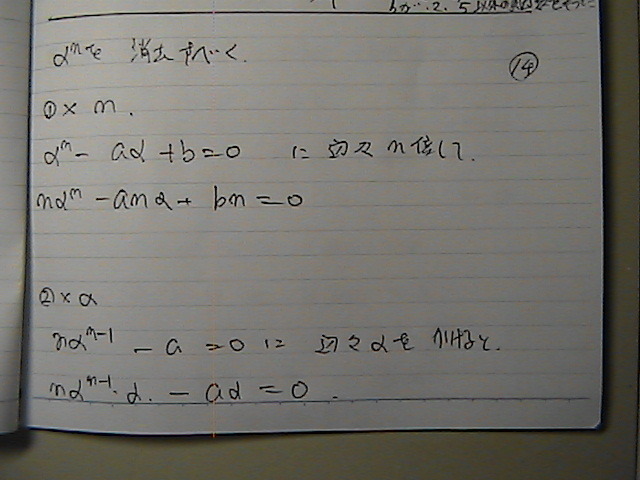 bが、2、5以外の
αⁿを 消去すべく.
⑭
①× n.
αⁿ - aα + b = 0 に 辺々 n倍して.
nαⁿ - anα + bn = 0
②× α
nαⁿ⁻¹ - a = 0 に 辺々 αを かけると.
nαⁿ⁻¹·α. - aα = 0.